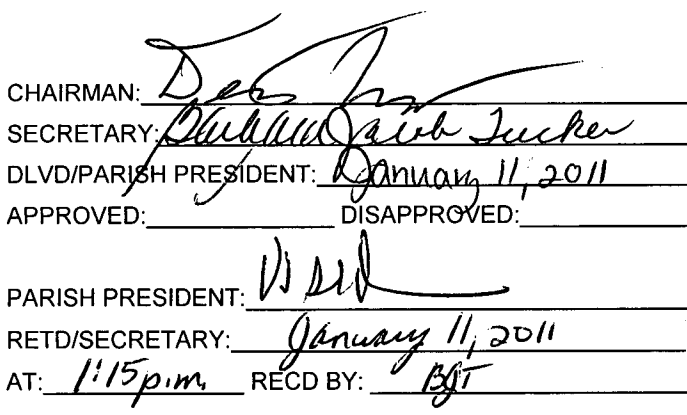 CHAIRMAN:
SECRETARY: Barbara Jacob Tucker
DLVD/PARISH PRESIDENT: January 11, 2011
APPROVED: DISAPPROVED:
PARISH PRESIDENT:
RETD/SECRETARY: January 11, 2011
AT: 1:15 p.m. RECD BY: BJT